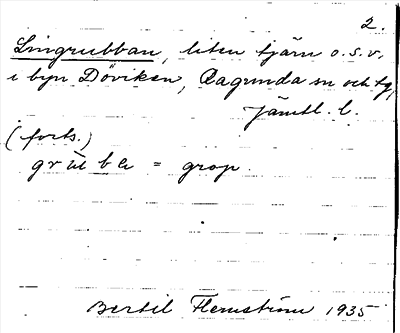 2.
Lingrubban, liten tjärn o.s.v.
i byn Döviken, Ragunda sn och tg,
Jämtl. l.
(forts.)
grub̀ba = grop.
Bertil Flemström 1935